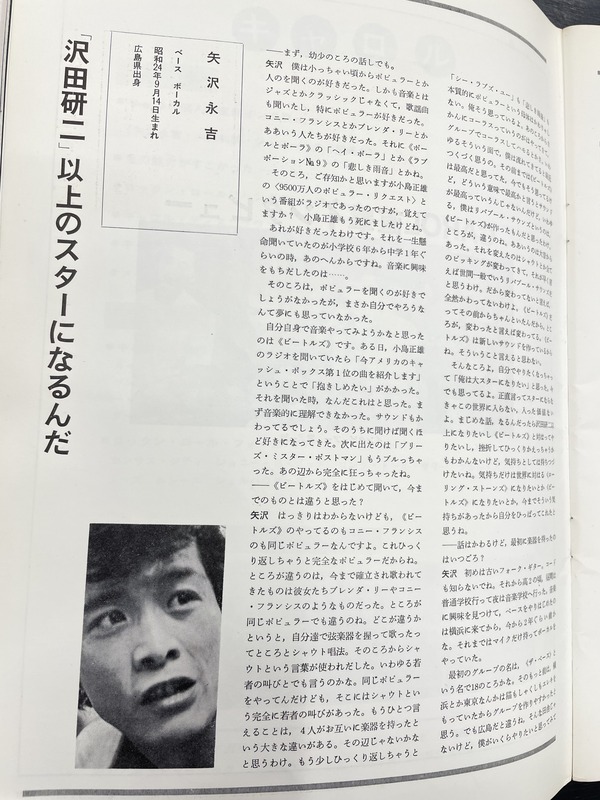 「沢田研二」以上のスターになるんだ
矢沢永吉
ベース ボーカル
昭和24年9月14日生まれ
広島県出身
——まず，幼少のころの話しでも。
矢沢 僕は小っちゃい頃からポピュラーとか
人のを聞くのが好きだった。しかも音楽とは
ジャズとかクラシックじゃなくて，歌謡曲
も聞いたし，特にポピュラーが好きだった。
コニー・フランシスとかブレンダ・リーとか
ああいう人たちが好きだった。それに《ポー
ルとポーラ》の「ヘイ・ポーラ」とか《ラブ
ポーション№9》の「悲しき雨音」とかね。
そのころ，ご存知かと思いますが小島正雄
の〈9500万人のポピュラー・リクエスト〉と
いう番組がラジオであったのですが，覚えて
ますか？ 小島正雄もう死にましたけどね。
あれが好きだったわけです。それを一生懸
命聞いていたのが小学校6年から中学1年ぐ
らいの時，あのへんからですね。音楽に興味
をもちだしたのは……。
そのころは，ポピュラーを聞くのが好きで
しょうがなかったが，まさか自分でやろうな
んて夢にも思っていなかった。
自分自身で音楽やってみようかなと思った
のは《ビートルズ》です。ある日，小島正雄
のラジオを聞いていたら「今アメリカのキャ
ッシュ・ボックス第1位の曲を紹介します」
ということで「抱きしめたい」がかかった。
それを聞いた時，なんだこれはと思った。ま
ず音楽的に理解できなかった。サウンドもか
わってるでしょう。そのうちに聞けば聞くほ
ど好きになってきた。次に出たのは「プリー
ズ・ミスター・ポストマン」もうブルっちゃ
った。あの辺から完全に狂っちゃったね。
——《ビートルズ》をはじめて聞いて，今ま
でのものとは違うと思った？
矢沢 はっきりはわからないけども，《ビー
トルズ》のやってるのもコニー・フランシス
のも同じポピュラーなんですよ。これひっく
り返しちゃうと完全なポピュラーだからね。
ところが違うのは，今まで確立され歌われて
きたものは彼女たちブレンダ・リーやコニ
ー・フランシスのようなものだった。ところが
同じポピュラーでも違うのね。どこが違うか
というと，自分達で弦楽器を握って歌ったっ
てところとシャウト唱法。そのころからシャ
ウトという言葉が使われだした。いわゆる若
者の叫びとでも言うのかな。同じポピュラー
をやってんだけども，そこにはシャウトとい
う完全に若者の叫びがあった。もうひとつ言
えることは，4人がお互いに楽器を持ったと
いう大きな違いがある。その辺じゃないかな
と思うわけ。もう少しひっくり返しちゃうと
「シー・ラブズ・ユー」も
本質的にポピュラーという
ない。俺そう思っている。
かんにコーラスっていうのが
グループでコーラスしてても
ゆるそういう面で，僕は遅れ
は最高だと思ってた。今でもそう思ってる
ど，どういう意味で最高かと言うと
が最高っていうんじゃないんだけど，
る。僕はリバプール・サウンズというのは，
《ビートルズ》が作ったもんだと思ってた。
ところが，違うのね。
あった。それを変えたのはシャウトと
のピッキングが変わってきて，
えば世間一般でいうリバプール・サウンズだ
と思うわけ。だから変わってないと思えば，
全然かわってないわけよ。《ビートルズ》だ
ってその前からちゃんといたんだから。
ろが，変わったと言えば変わってる。《ビー
トルズ》は新しいサウンドを作っているから
ね。そういうこと言えると思わない。
そんなころよ，自分でやりたくなっちゃっ
て「俺は大スターになりたい」と思った。今
でも思ってるよ。正直言ってスターにならな
きゃこの世界に入らない，入った価値ない
よ。まじめな話，なるんだったら沢田研二以
上になりたいし《ビートルズ》と対なってや
りたいし，挫折してひっくりかえっちゃうか
もわかんないけど，気持ちとしては持ちつづ
けたいね。気持ちだけは世界に対なる《ロー
リング・ストーンズ》になりたいとか《ビー
トルズ》になりたいとか。今までそういう気
持ちがあったから自分をひっぱってこれたと
思うね。
——話はかわるけど，最初に楽器を持ったの
はいつごろ？
矢沢 初めは古いフォーク・ギター。コード
も知らないでね。それから高2の頃，昼間は
普通学校行って夜は音楽学校へ行った。音楽
に興味を見つけて，ベースをやりはじめたの
は横浜に来てから，今から2年ぐらい前か
な。それまではマイクだけ持ってボーカルを
やっていた。
最初のグループの名は，《ザ・ベース》と
いう名で18のころかな。そのもっと前は，横
浜とか東京なんかは猫もしゃくしもエレキを
もっていたからグループを作りやすかったと
思う。でも広島だと違うね。そんな田舎じゃ
ないけど，僕がいくらやりたいと思ってみて